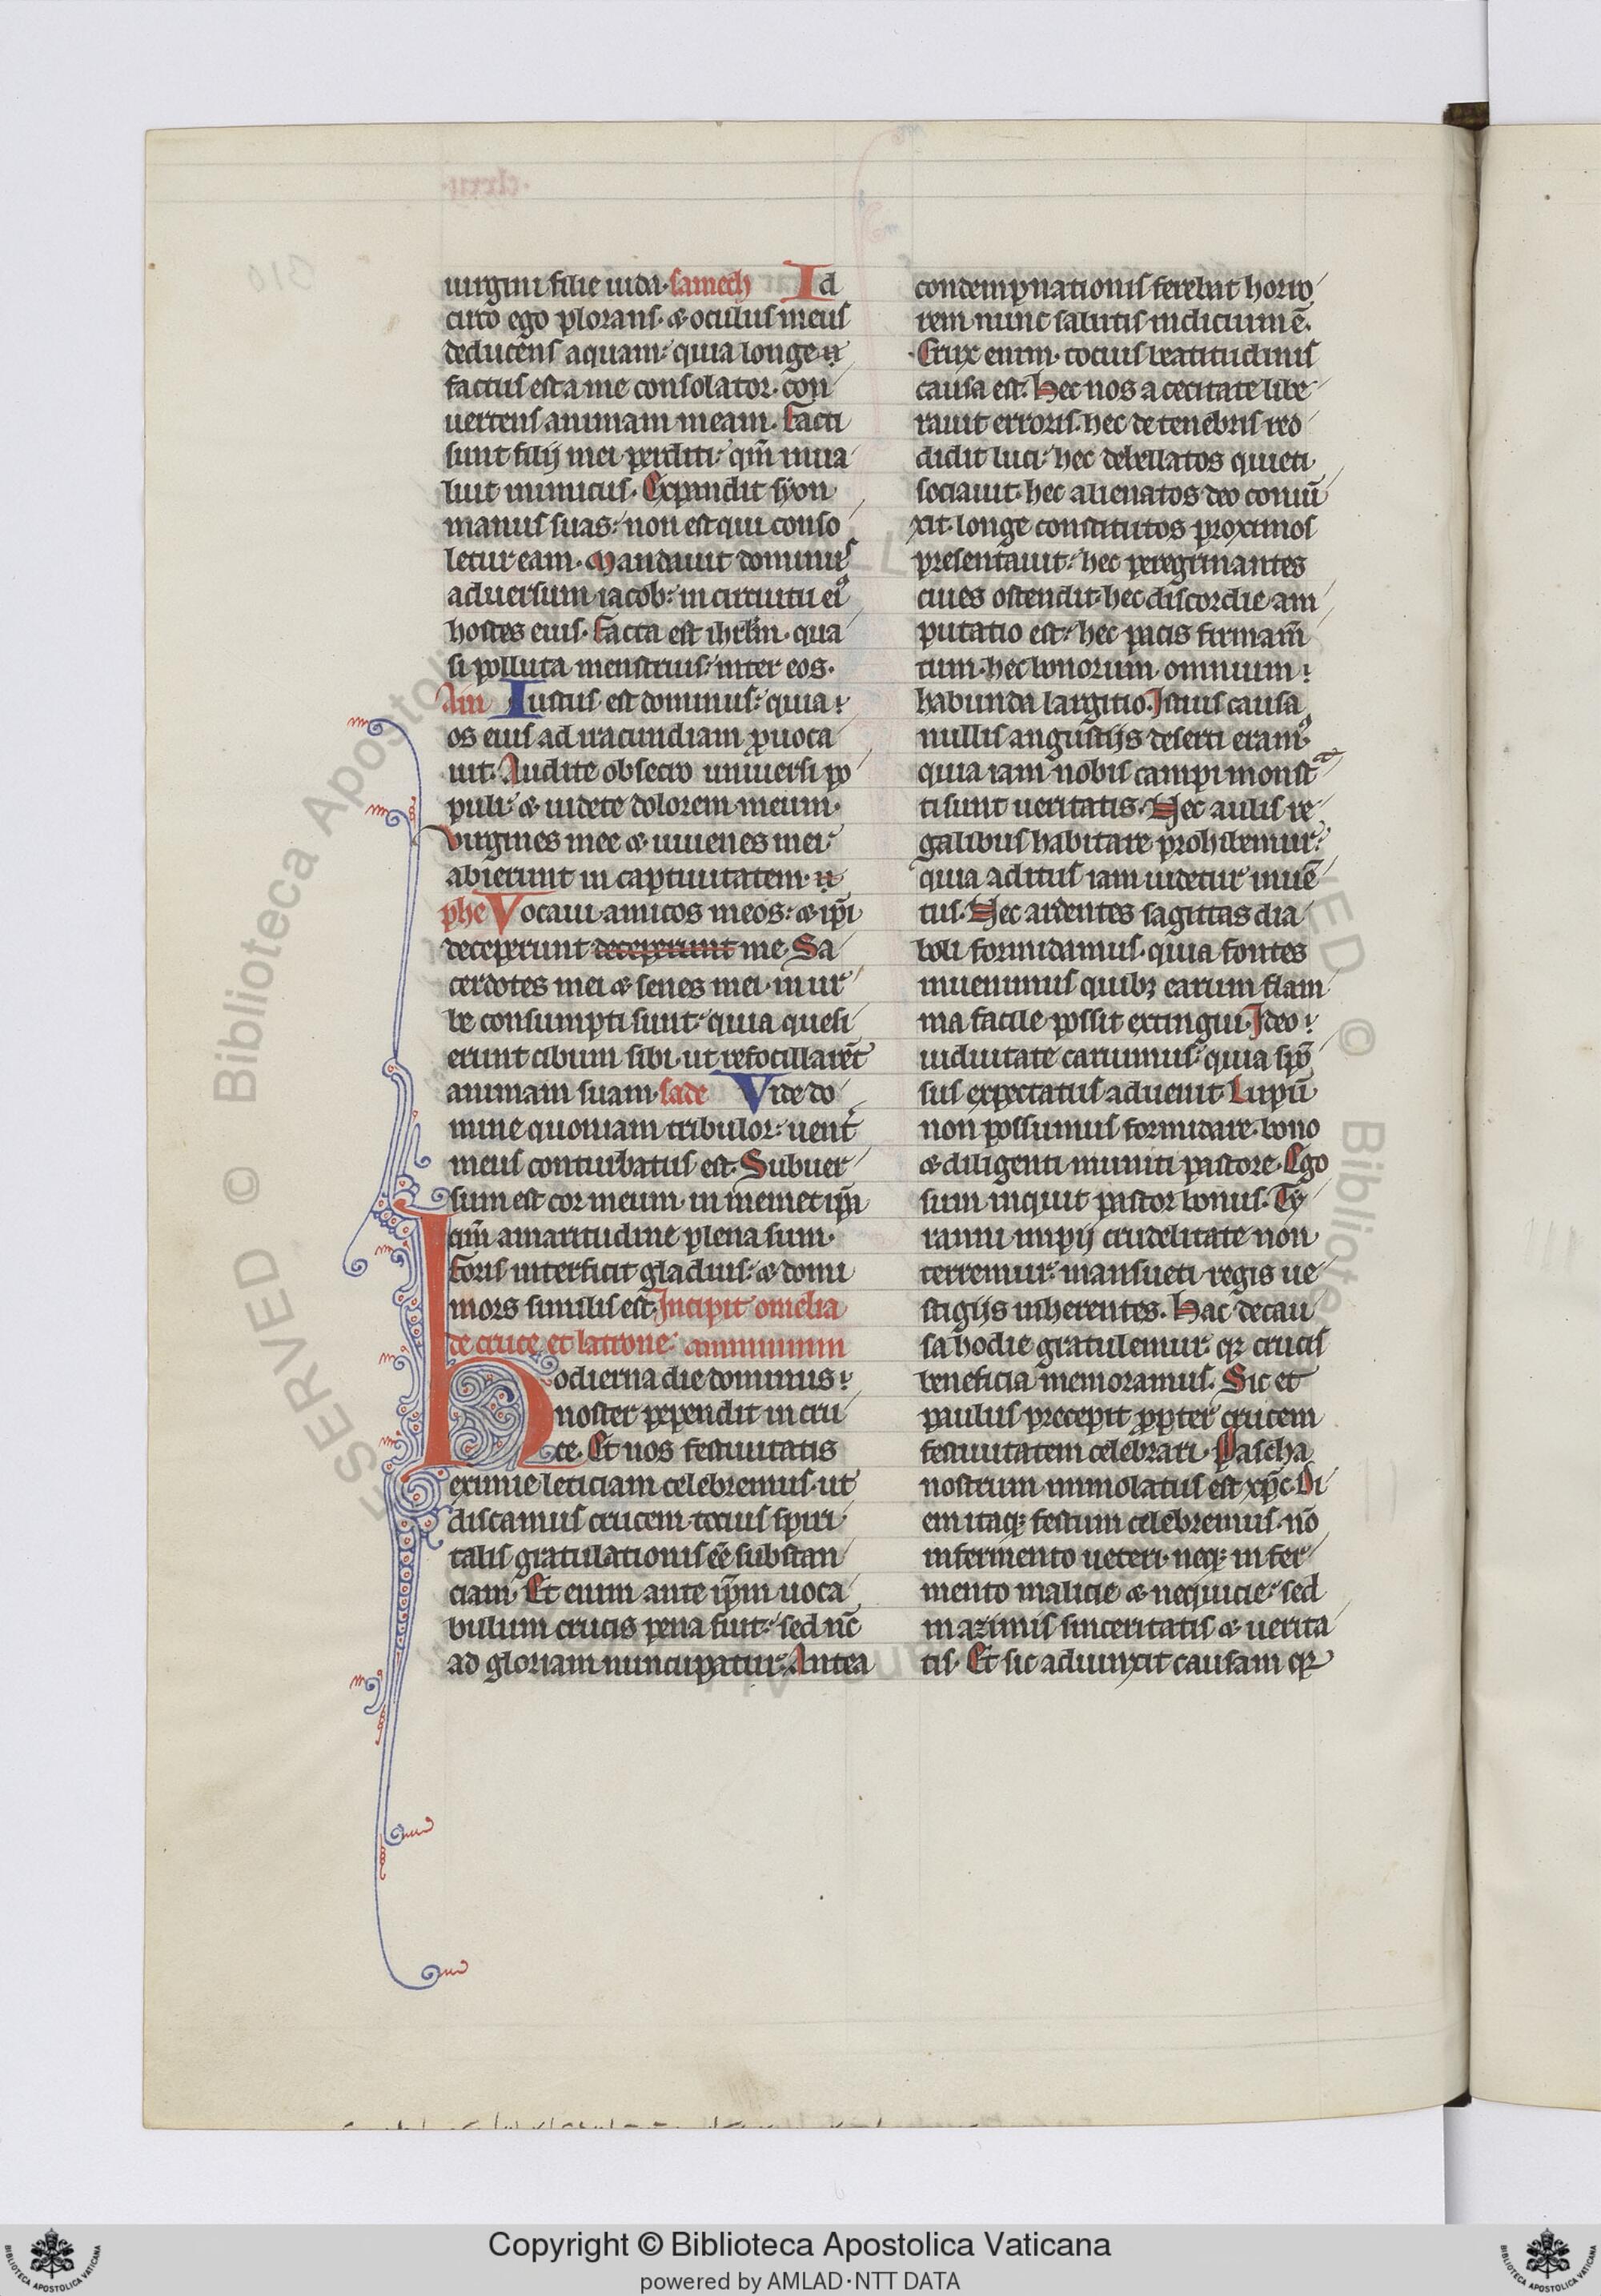 uirgini filie iuda. samech Id
circo ego plorans. & oculus meus
deducens aquam: quia longe
factus est a me consolator. con
uertens animam meam. Facti
sunt filij mei perditi: qm̄ inua
luit inimicus. Expandit syon
manus suas: non est qui conso
letur eam. Mandauit dominus
aduersum iacob: in circuitu eiꝰ
hostes eius. Facta est ihrlm̄. qua
si polluta menstruis: inter eos.
Ain Iustus est dominus: quia
os eius ad iracundiam ꝓuoca
uit. Audite obsecro uniuersi po
puli: & uidete dolorem meum.
Virgines mee & iuuenes mei:
abierunt in captiuitatem.
phe Vocaui amicos meos: & ip̄i
deceperunt deceperunt me. Sa
cerdotes mei & senes mei. in ur
be consumpti sunt: quia quesi
erunt cibum sibi. ut refocillarēt
animam suam. sade Vide do
mine quoniam tribulor: uenter
meus conturbatus est. Subuer
sum est cor meum. in memet ip̄a
qm̄ amaritudine plena sum.
Foris interficit gladius: & domi
mors similis est. Incipit omelia
de cruce et latrone:
Hodierna die dominus
noster pependit in cru
ce. Et nos festiuitatis
eximie leticiam celebremus. ut
discamus crucem tocius spiri
talis gratulationis eē substan
ciam. Et enim ante ip̄m uoca
bulum crucis pena fuit: sed nc̄
ad gloriam nuncupatur. Antea
contempnationis ferebat horro
rem. nunc salutis indicium ē.
Crux enim. tocius beatitudinis
causa est. Hec nos a cecitate libe
rauit erroris. hec de tenebris red
didit luci: hec debellatos quieti
sociauit. hec alienatos deo coniū
xit. longe constitutos proximos
presentauit: hec peregrinantes
ciues ostendit. hec discordie am
putatio est: hec pacis firmam̄
tum. hec bonorum omnium
habunda largitio. Istius causa
nullis angustijs deserti eramꝰ.
quia iam nobis campi monstᵃ
ti sunt ueritatis. Hec aulis re
galibus habitare prohibemur:
quia aditus iam uidetur inuē
tus. Hec ardentes sagittas dia
boli formidamus. quia fontes
inuenimus quibꝫ earum flam
ma facile possit extingui. Ideo
uiduitate carumus: quia spō
sus expectatus aduenit. Lupū
non possumus formidare. bono
& diligenti muniti pastore. Ego
sum inquit pastor bonus. Ty
ranni impij crudelitate non
terremur: mansueti regis ue
stigijs inherentes. Hac de cau
sa hodie gratulemur. qꝫ crucis
beneficia memoramus. Sic et
paulus precepit ꝓpter crucem
festiuitatem celebrari. Pascha
nostrum immolatus est xp̄c. Di
em itaqꝫ festum celebremus. nō
in fermento ueteri. neqꝫ in fer
mento malicie & nequicie: sed
in azimis sinceritatis & uerita
tis. Et sic adiunxit causam qꝫ
Copyright © Biblioteca Apostolica Vaticana
powered by AMLAD·NTT DATA